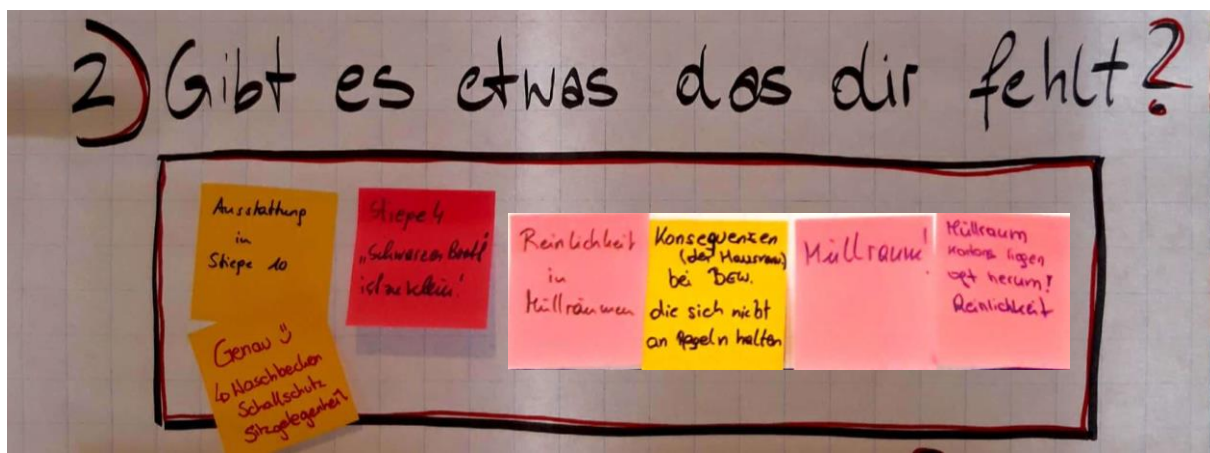 2) Gibt es etwas das dir fehlt?
Ausstattung
in
Stiege 10
Genau
↳ Waschbecken
Schallschutz
Sitzgelegenheit
Stiege 4
„Schwarzes Brett"
ist zu klein!
Reinlichkeit
in
Müllräumen
Konsequenzen
(der Hausverw)
bei BEW.
die sich nicht
an Regeln halten
Müllraum!
Müllraum
Kartons liegen
oft herum!
Reinlichkeit